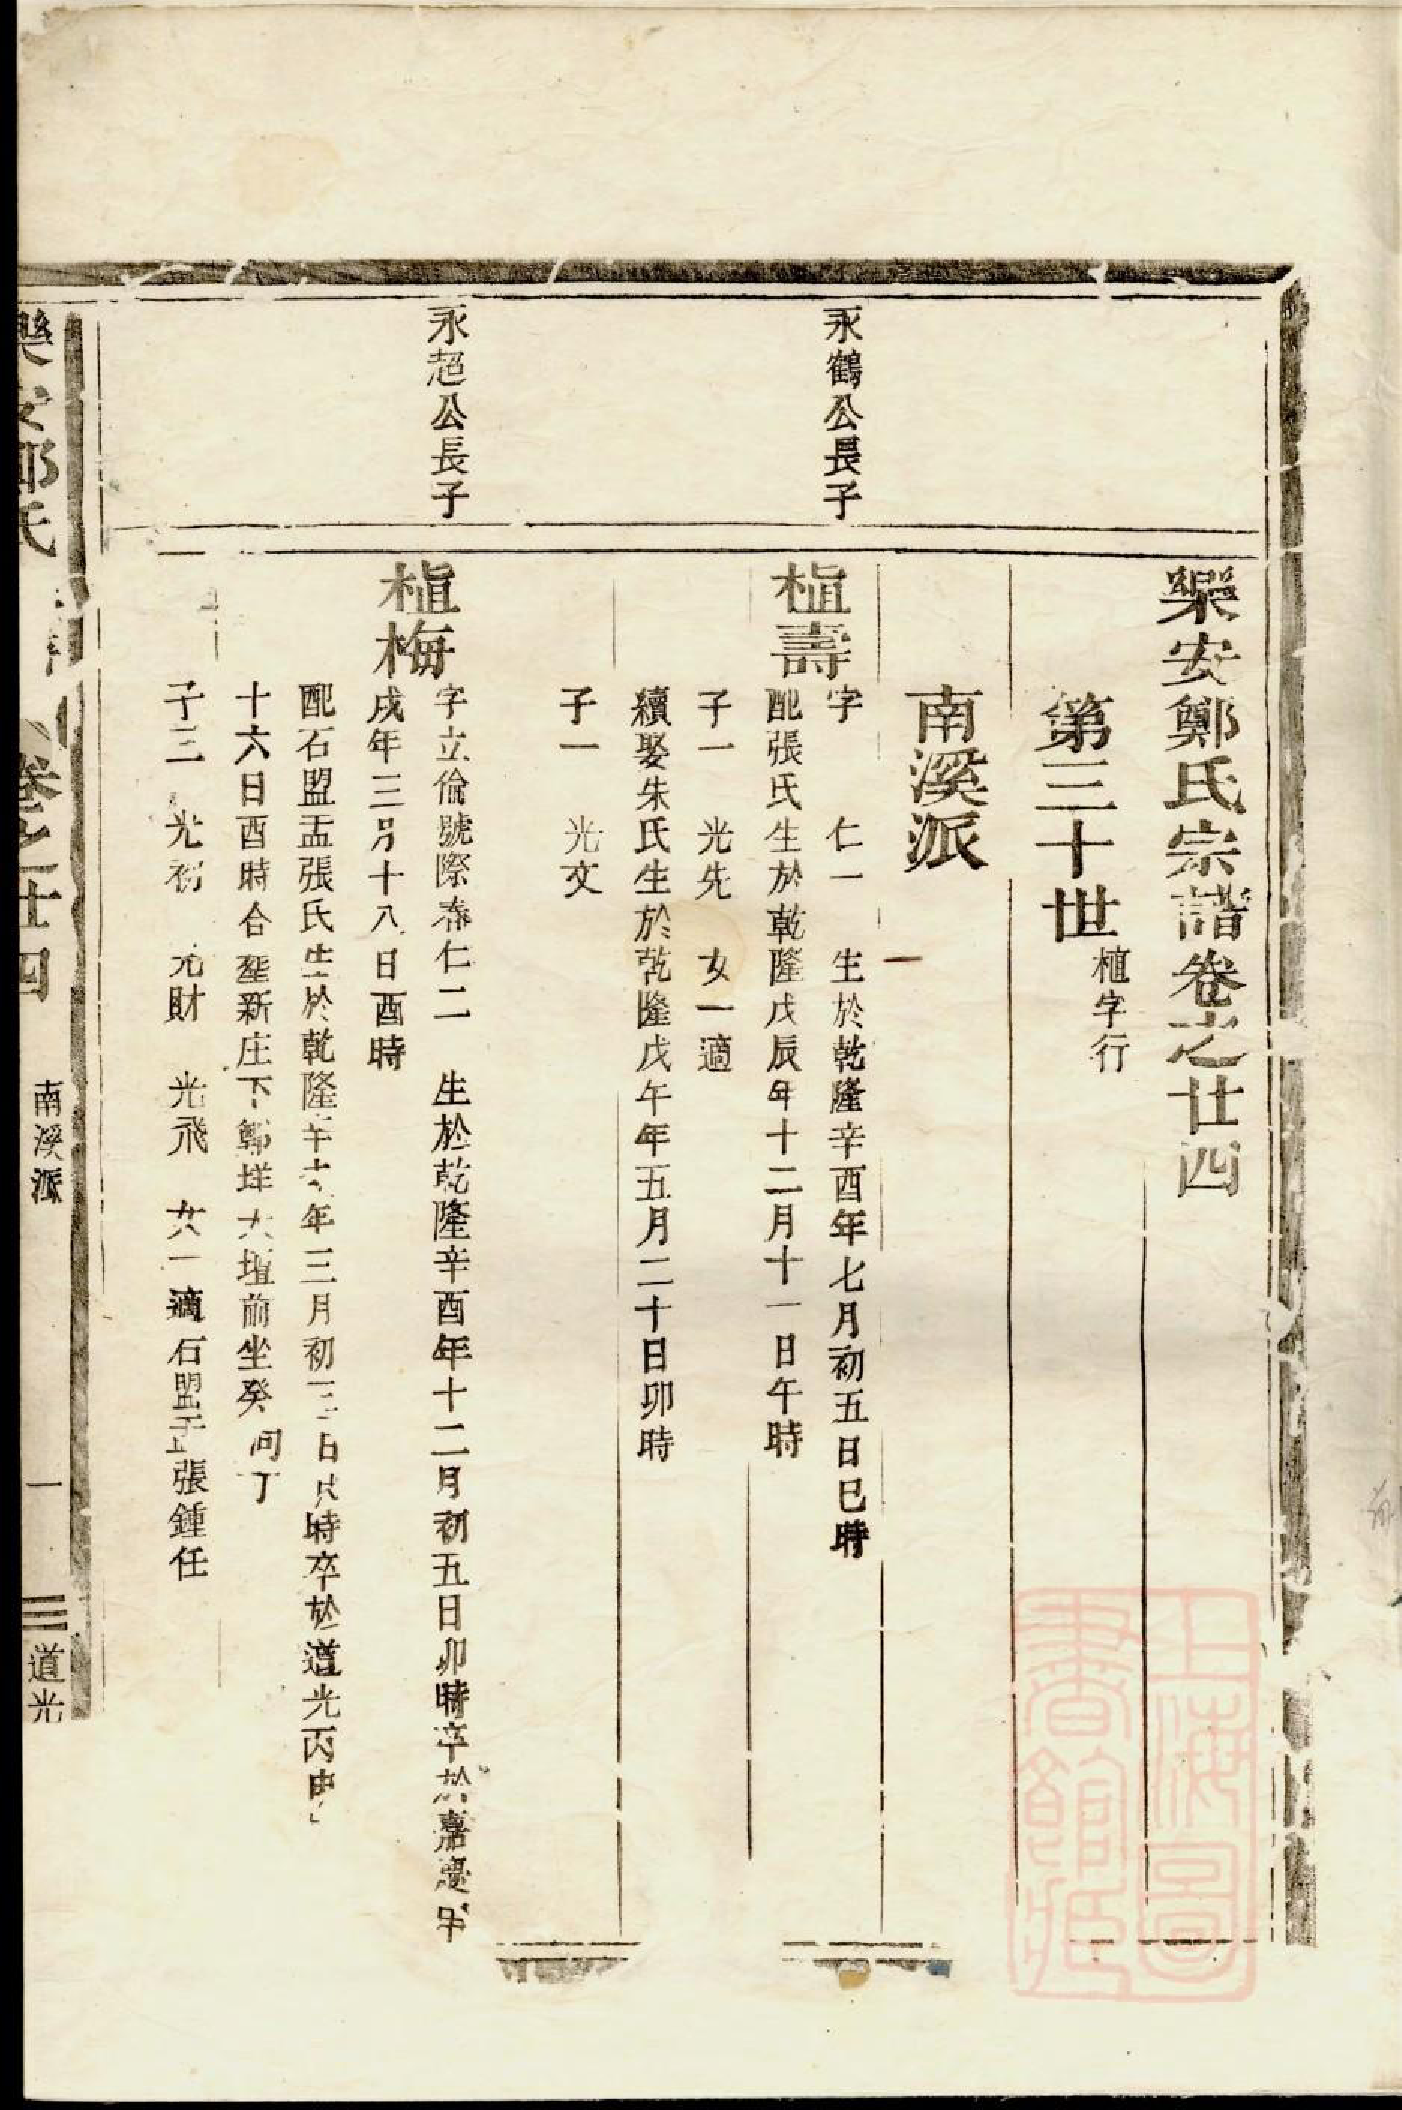 樂安鄭氏宗譜卷之廿四
第三十世
植字行
南溪派
永鶴公長子
植壽
字 仁一 生於乾隆辛酉年七月初五日巳時
配張氏生於乾隆戊辰年十二月十一日午時
子一 光先 女一適
續娶朱氏生於乾隆戊午年五月二十日卯時
子一 光文
永超公長子
植梅
字立倫號際春仁二 生於乾隆辛酉年十二月初五日卯時卒於嘉慶
戌年三月十八日酉時
配石盟盂張氏生於乾隆 年三月初三日 時卒於道光丙申
十六日酉時合塟新庄下鄭垟大壇前坐癸向丁
子三 光初 元財 光飛 女一適石盟 張鍾任
樂安鄭氏 卷之廿四 南溪派 一 道光
上海圖書館藏